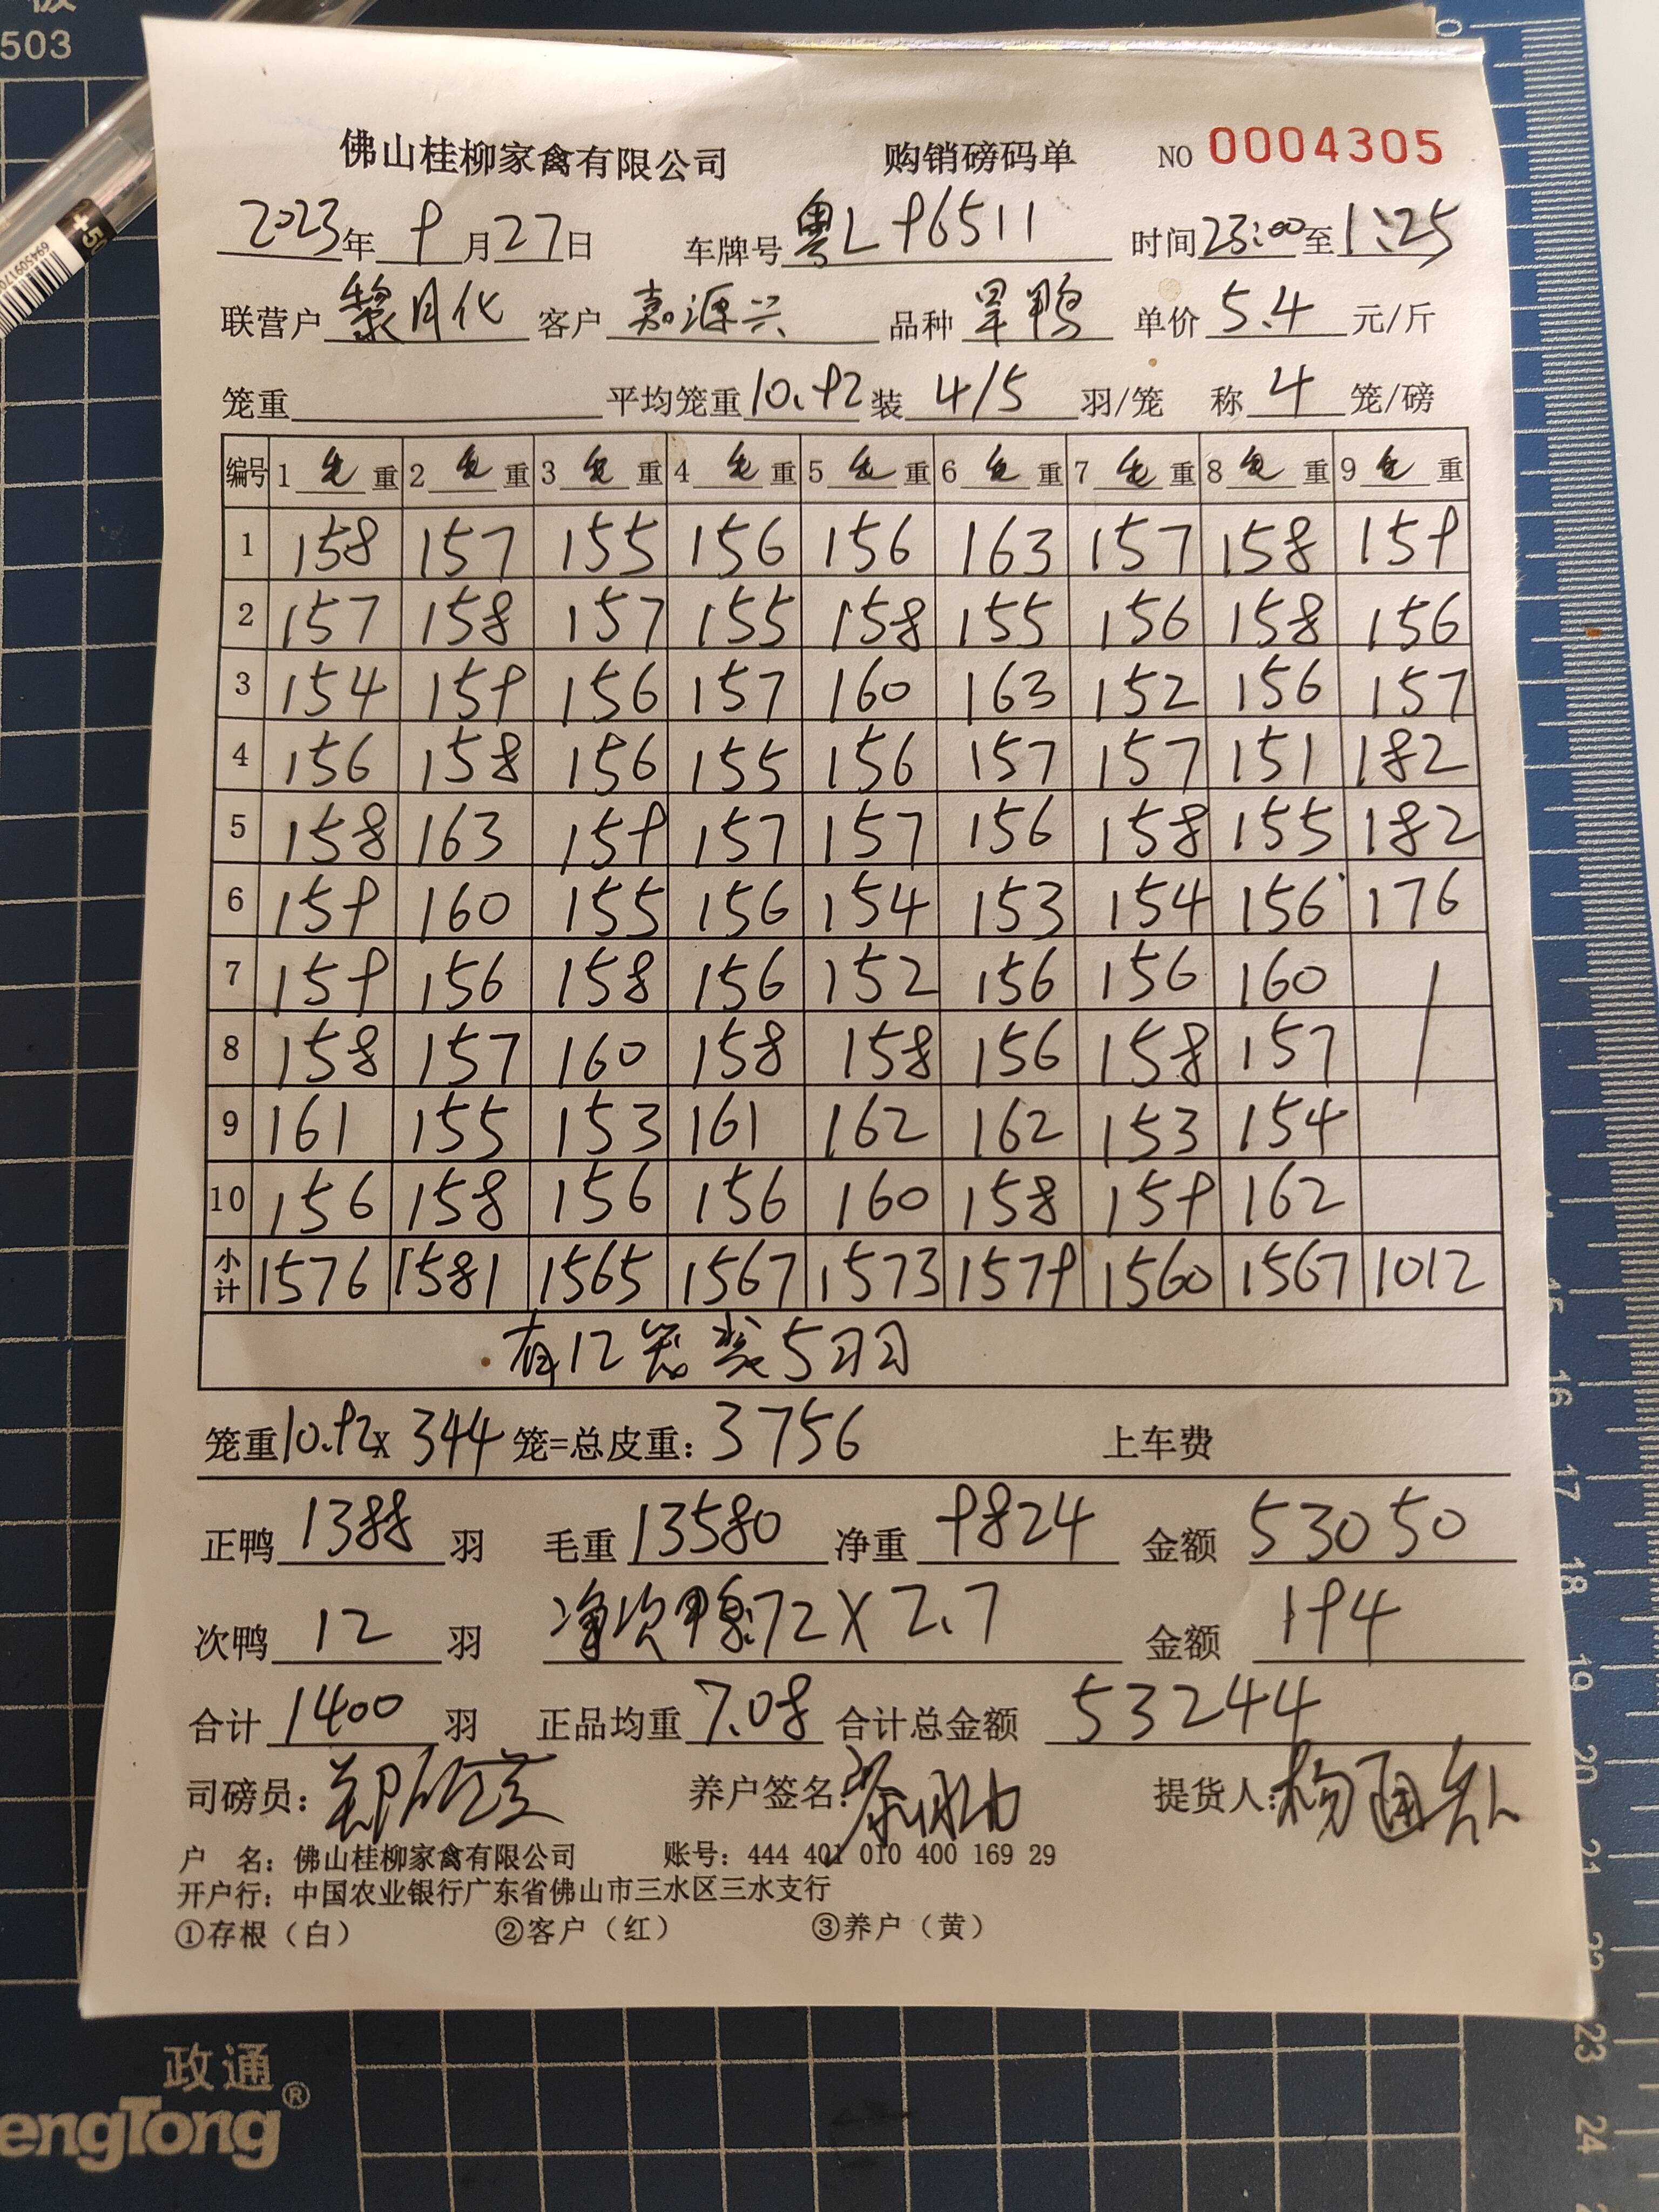 503
佛山桂柳家禽有限公司 购销磅码单 NO 0004305
2023年 9 月 27 日 车牌号 粤L 96511 时间 23:00 至 1:25
联营户 黎月化 客户 嘉源兴 品种 旱鸭 单价 5.4 元/斤
笼重 平均笼重 10.92 装 4/5 羽/笼 称 4 笼/磅
编号 1 毛 重 2 毛 重 3 毛 重 4 毛 重 5 毛 重 6 毛 重 7 毛 重 8 毛 重 9 毛 重
1 158 157 155 156 156 163 157 158 159
2 157 158 157 155 158 155 156 158 156
3 154 159 156 157 160 163 152 156 157
4 156 158 156 155 156 157 157 151 182
5 158 163 159 157 157 156 158 155 182
6 159 160 155 156 154 153 154 156 176
7 159 156 158 156 152 156 156 160
8 158 157 160 158 158 156 158 157
9 161 155 153 161 162 162 153 154
10 156 158 156 156 160 158 159 162
小计 1576 1581 1565 1567 1573 1579 1560 1567 1012
有12笼装5羽
笼重 10.92 x 344 笼=总皮重: 3756 上车费
正鸭 1388 羽 毛重 13580 净重 9824 金额 53050
次鸭 12 羽 净次鸭:72 X 2.7 金额 194
合计 1400 羽 正品均重 7.08 合计总金额 53244
司磅员: 养户签名: 提货人:
户 名: 佛山桂柳家禽有限公司 账号: 444 401 010 400 169 29
开户行: 中国农业银行广东省佛山市三水区三水支行
①存根（白） ②客户（红） ③养户（黄）
政通
engTong®